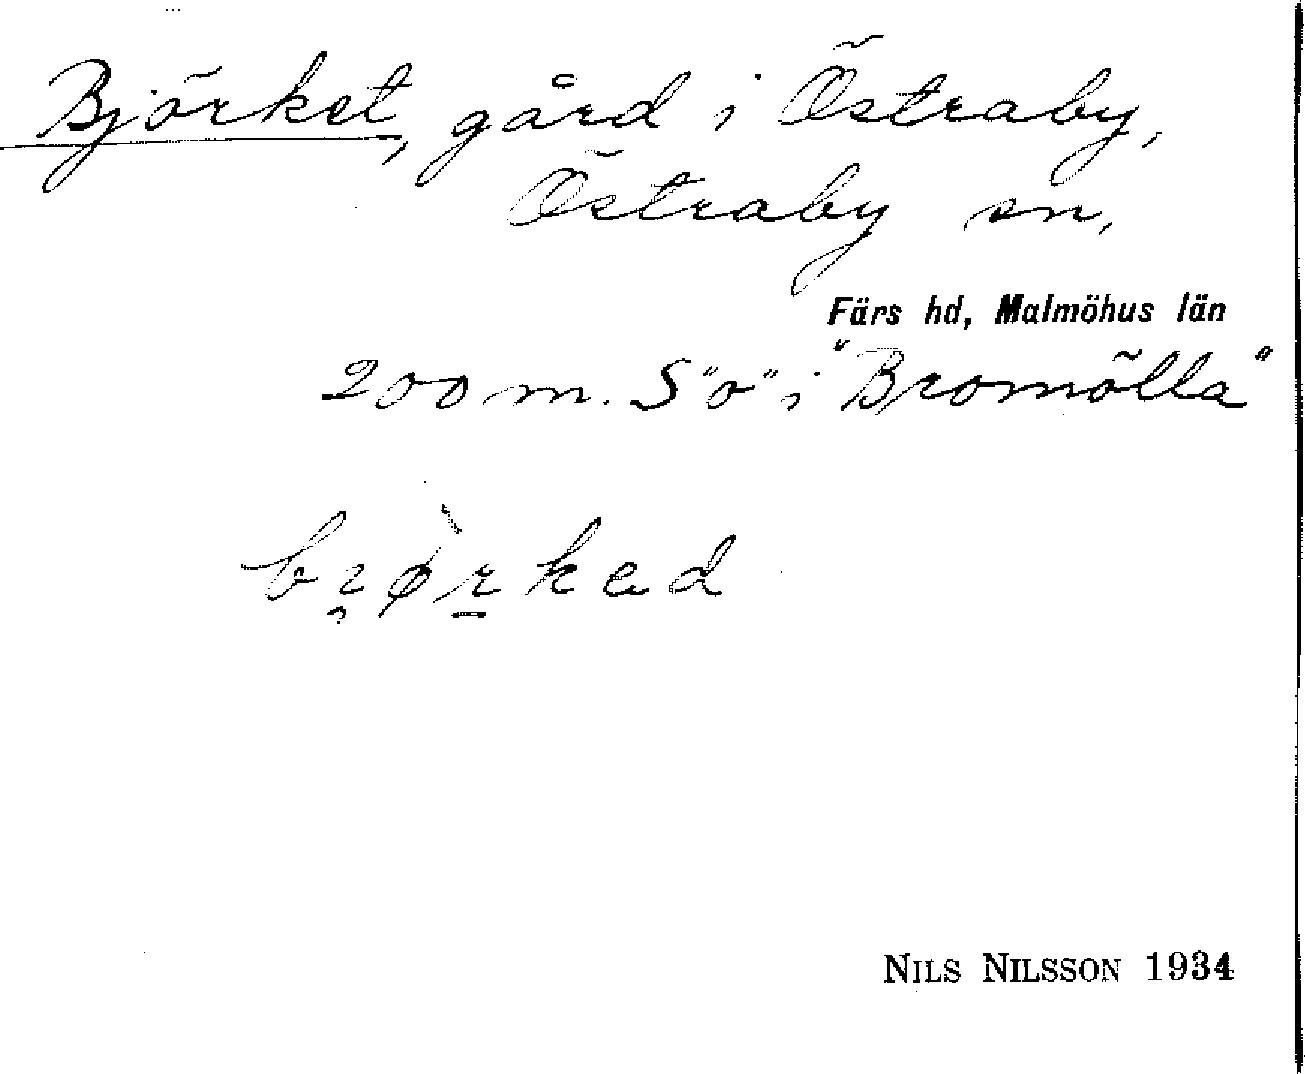 Björket, gård i Östraby,
Östraby sn,
Färs hd, Malmöhus län
200 m. S "o" i "Bromölla"
bi̯ø̀r̠kad
NILS NILSSON 1934